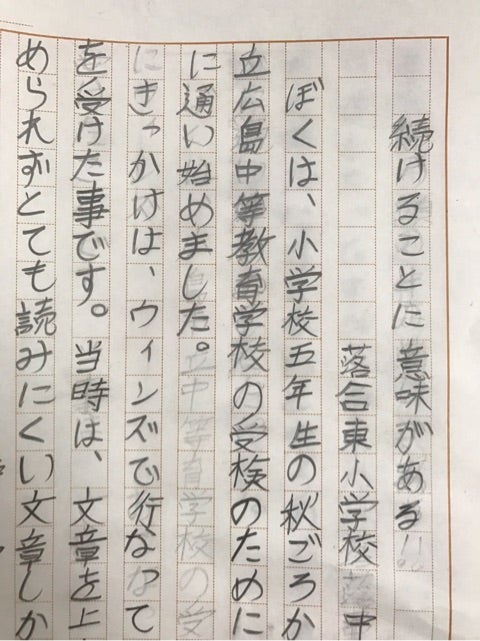 続けることに意味がある
落合東小学校 中
ぼくは、小学校五年生の秋ごろか
立広島中等教育学校の受検のために
に通い始めました。
きっかけは、ウィンズで行なって
を受けた事です。当時は、文章を上
められずとても読みにくい文章しか